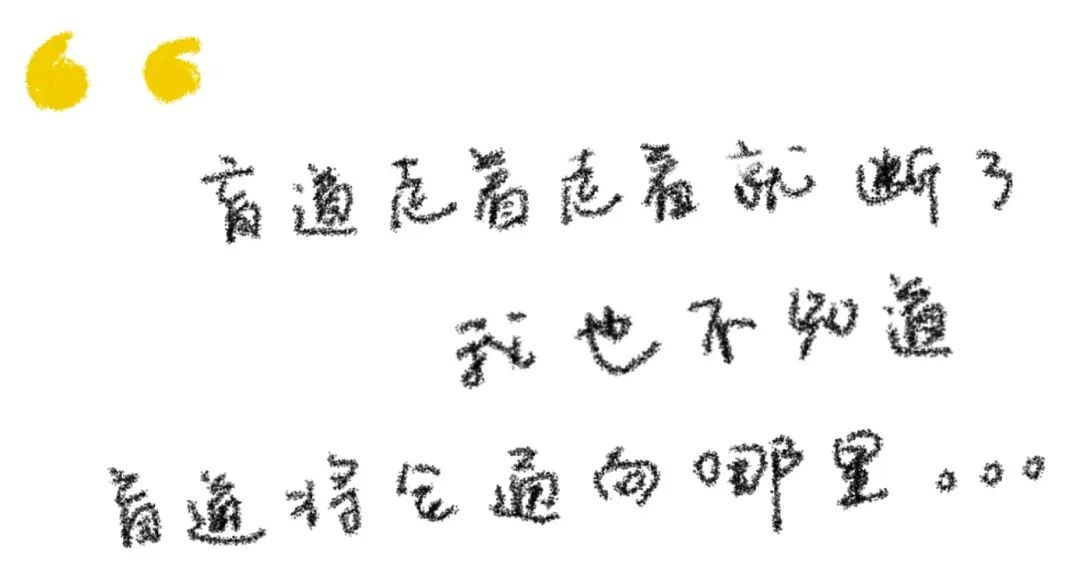 “
盲道走着走着就断了
我也不知道
盲道将会通向哪里...